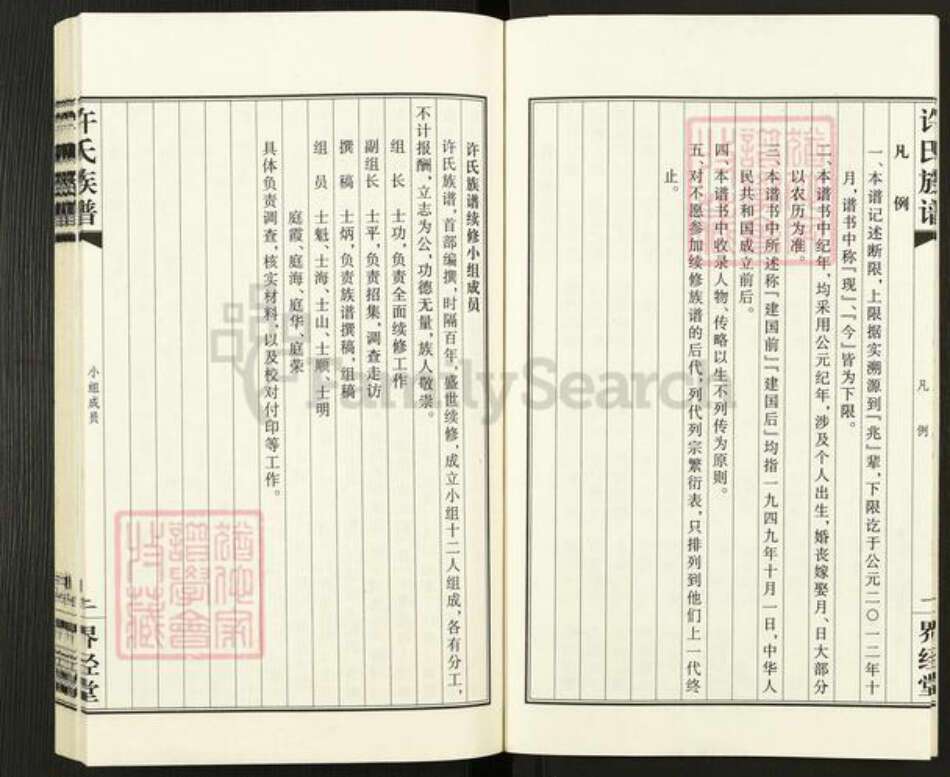 许氏族谱
凡例
一
界经堂
凡例
一、本谱记述断限，上限据实溯源到『兆』辈，下限讫于公元二〇一二年十
月，谱书中称『现』、『今』皆为下限。
二、本谱书中纪年，均采用公元纪年，涉及个人出生，婚丧嫁娶月、日大部分
以农历为准。
三、本谱书中所述称『建国前』『建国后』均指一九四九年十月一日，中华人
民共和国成立前后。
四、本谱书中收录人物、传略以生不列传为原则。
五、对不愿参加续修族谱的后代，列代列宗繁衍表，只排列到他们上一代终
止。
许氏族谱续修小组成员
许氏族谱，首部编撰，时隔百年，盛世续修，成立小组十二人组成，各有分工，
不计报酬，立志为公，功德无量，族人敬崇。
组长 士功，负责全面续修工作
副组长 士平，负责招集，调查走访
撰稿 士炳，负责族谱撰稿，组稿
组员 士魁、士海、士山、士顺、士明
庭霞、庭海、庭华、庭荣
具体负责调查，核实材料，以及校对付印等工作。
许氏族谱
小组成员
二
界经堂
FamilySearch